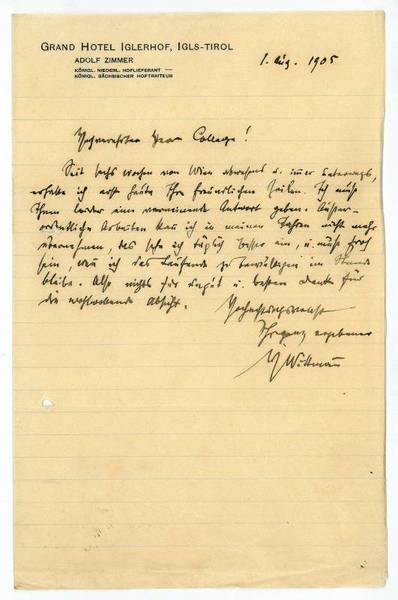 GRAND HOTEL IGLERHOF, IGLS-TIROL
ADOLF ZIMMER
KÖNIGL. NIEDERL. HOFLIEFERANT —
KÖNIGL. SÄCHSISCHER HOFTRAITEUR
1. Aug. 1905
Hochverehrter Herr College!
Seit sechs Wochen von Wien abwesend u. immer unterwegs,
erhalte ich erst heute Ihre freundlichen Zeilen. Ich muß
Ihnen leider eine verneinende Antwort geben. Ausser-
ordentliche Arbeiten kan ich in meinen Jahren nicht mehr
übernehmen, das sehe ich täglich besser ein, u. muß froh
sein, wen ich das Laufende zu bewältigen im Stande
bleibe. Also nichts für ungut u. besten Dank für
die wohlwollende Absicht.
Hochachtungsvollst
Ihr ganz ergebener
Wittmann